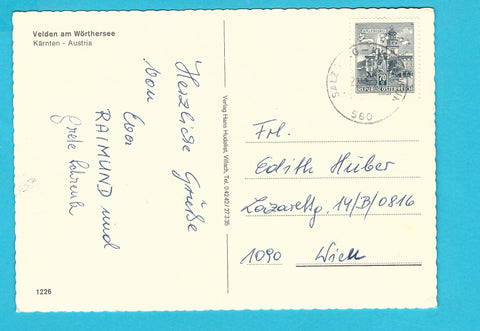 Velden am Wörthersee
Kärnten - Austria
Herzliche Grüße
von
Eber
RAIMUND und
Grete
Verlag Hans Hudelist, Villach, Tel. 0 42 42 / 27 3 35
SALZ
560
REPUBLIK ÖSTERREICH
Frl.
Edith Huber
Lazarettg. 14/B/0816
1090 Wien
1226